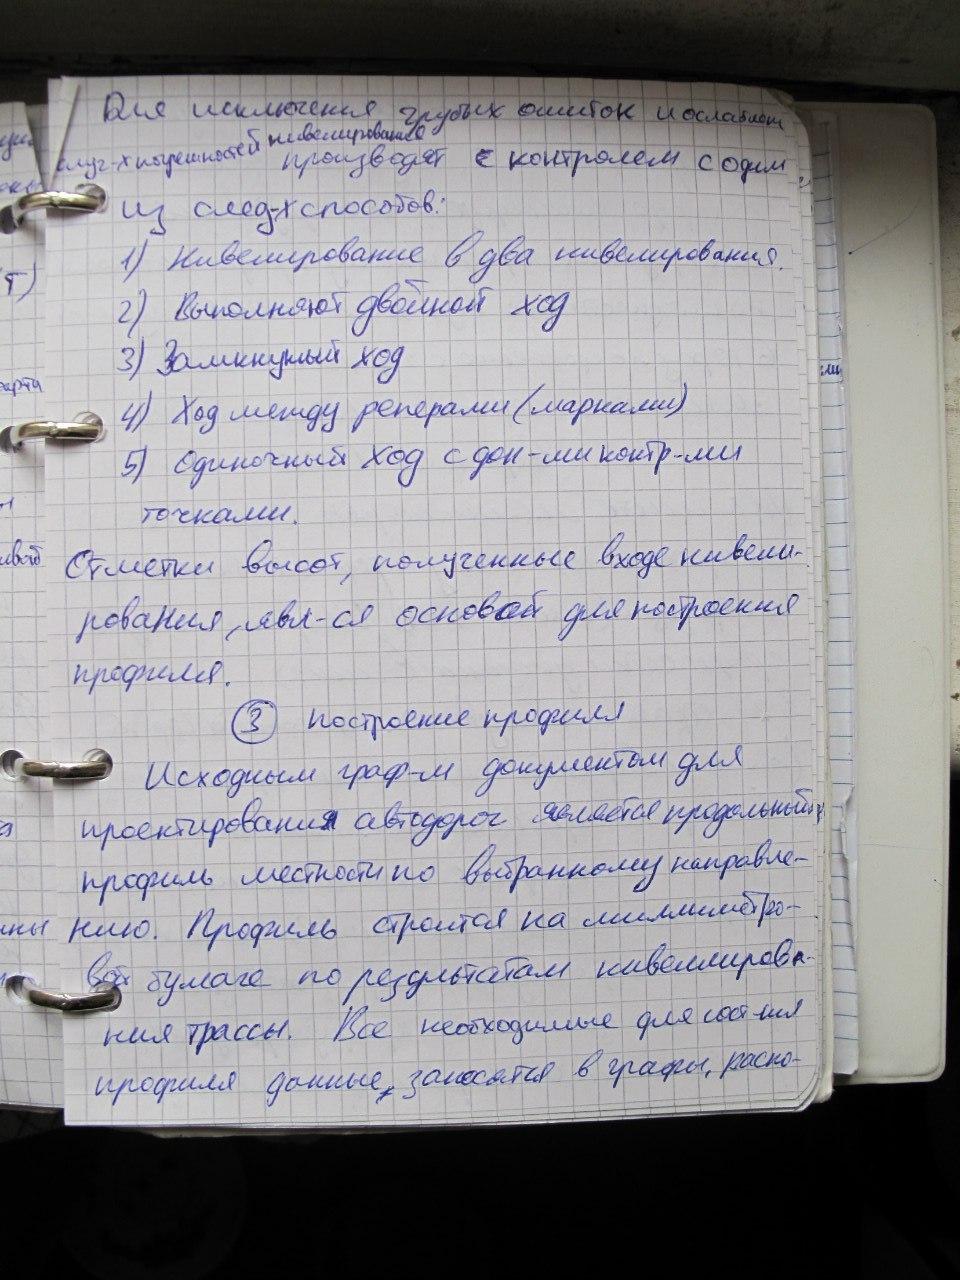 Для исключения грубых ошибок и ослаблен
случ-х погрешностей нивелирование
производят с контролем с одим
из след-х способов:
1) Нивелирование в два нивелирования.
2) Выполняют двойной ход
3) Замкнутый ход
4) Ход между реперами (марками)
5) Одиночный ход с доп-ми контр-ми
точками.
Отметки высот, полученные входе нивели-
рования, явл-ся основой для построения
профиля.
3 построение профиля
Исходным граф-м документом для
проектирования автодорог является продольный
профиль местности по выбранному направле-
нию. Профиль строится на миллиметро-
вой бумаге по результатам нивеллирова-
ния трассы. Все необходимые для сост-ния
профиля данные, заносятся в графы, распо-